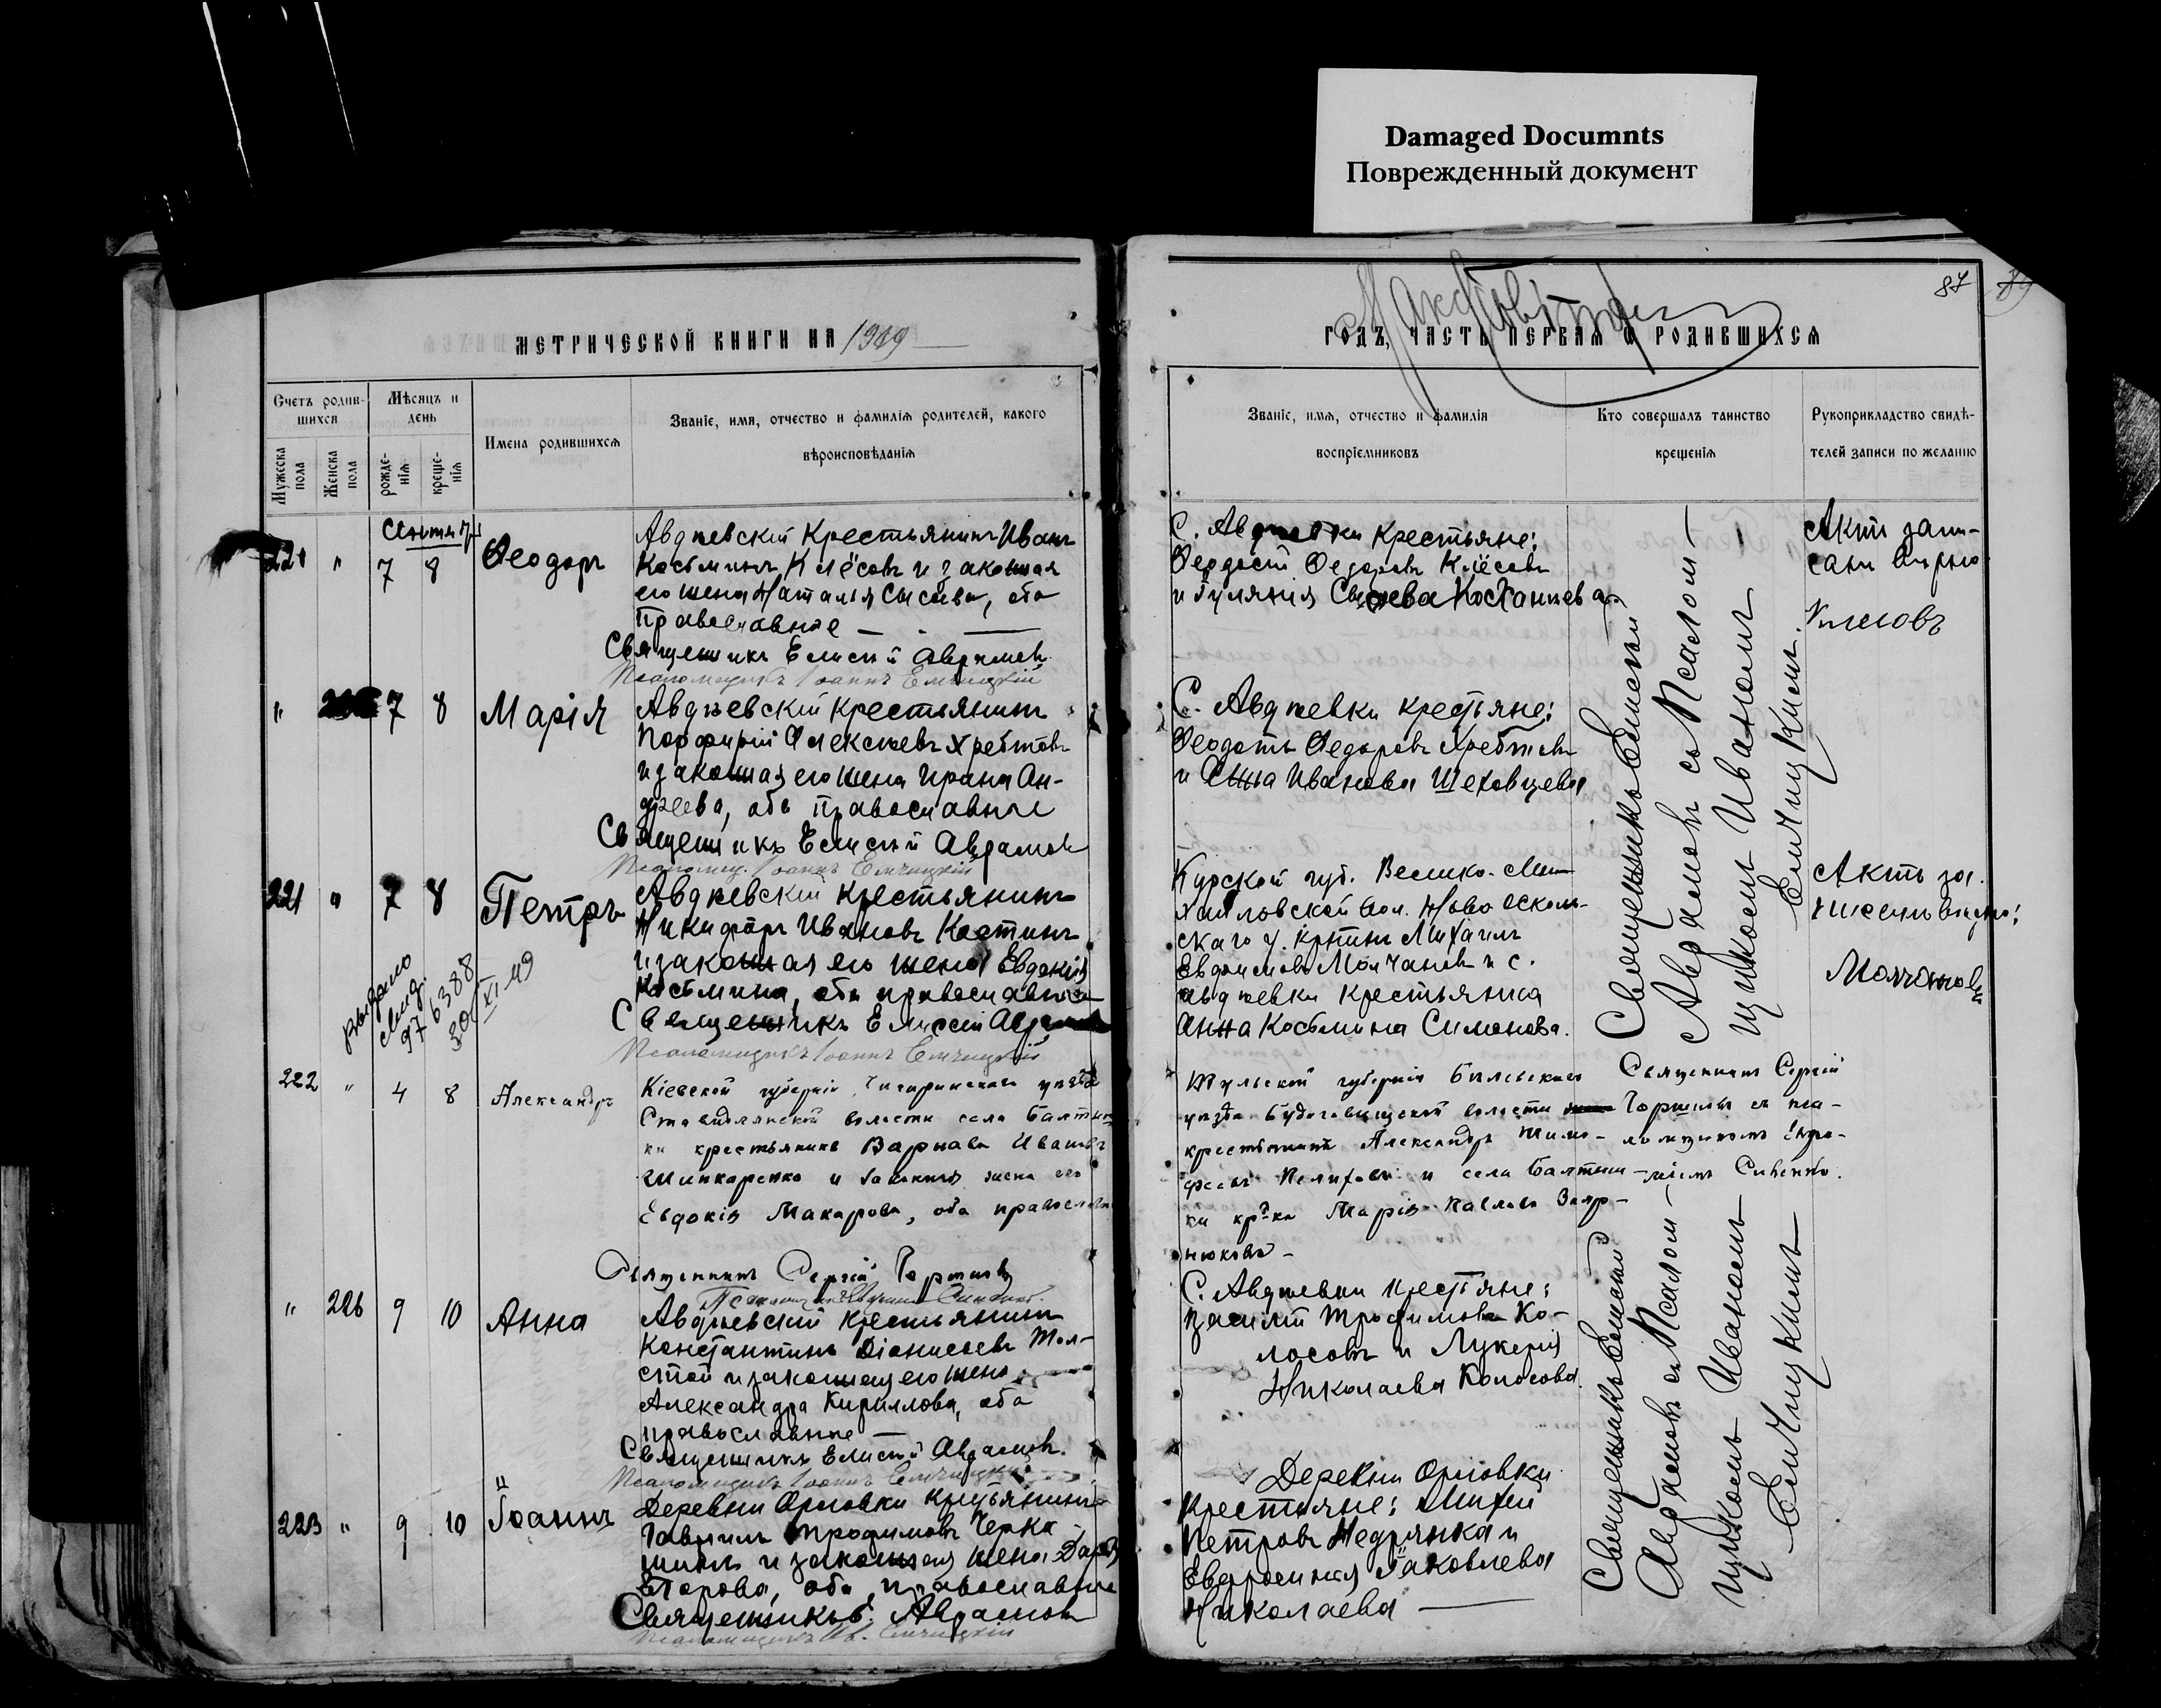 Damaged Documnts
Поврежденный документ
87
МЕТРИЧЕСКОЙ КНИГИ НА 1909
ГОДЪ, ЧАСТЬ ПЕРВАЯ О РОДИВШИХСЯ
Счетъ родив-
шихся
Мужеска
пола
Женска
пола
Мѣсяцъ и
день
рожде-
нія
креще-
нія
Имена родившихся
Званіе, имя, отчество и фамилія родителей, какого
вѣроисповѣданія
Званіе, имя, отчество и фамилія
воспріемниковъ
Кто совершалъ таинство
крещенія
Рукоприкладство свидѣ-
телей записи по желанію
" 7 8 Ѳеодоръ
Авдѣевскій Крестьянинъ Иванъ
Косьминъ Клёсовъ и законная
его жена Наталія Сысоева, оба
православные
Священникъ Елисей Аврамовъ
Псаломщикъ Іоаннъ Емчицкій
С. Авдѣевки Крестьяне:
Ѳеодосій Ѳедоровъ Клёсовъ
Актъ запи-
" 7 8 Марія
Авдѣевскій крестьянинъ
Порфирій Алексѣевъ Хребтовъ
и законная его жена Ирина Ан-
дреева, оба православные
Священникъ Елисей Аврамовъ
Псаломщ. Іоаннъ Емчицкій
С. Авдѣевки крестьяне:
Ѳеодотъ Ѳедоровъ Хребтовъ
и Анна Иванова Шеховцева
221 " 7 8 Петръ
Авдѣевскій крестьянинъ
Никифоръ Ивановъ Костинъ
и законная его жена Евдокія
Косьмина, оба православные
Священникъ Елисей Аврамовъ
Псаломщикъ Іоаннъ Емчицкій
выдано
свид.
976388
30/XI 49
Курской губ. Велико-Ми-
хайловской вол. Ново оскол-
скаго у. крнинъ Михаилъ
Евдокимовъ Молчановъ и с.
Авдѣевки крестьянка
Анна Косьмина Симонова.
Актъ за-
Молчановъ
Священникъ Елисей
Аврамовъ съ Псалом-
щикомъ Иваномъ
Емчицкимъ.
222 " 4 8 Александръ
Кіевской губерніи Чигиринскаго уѣзда
Ставидлянской волости села Балтыш
ки крестьянинъ Варнава Ивановъ
Шинкаренко и законная жена его
Евдокія Макарова, оба православные
Священникъ Сергій
Тульской губерніи Бѣлевскаго
уѣзда Будоговищской волости
крестьянинъ Александръ Тимо-
и села Балтыш-
ки кр-ка Марія Павлова Запо-
нюкова
Священникъ Сергій
съ пса-
ломщикомъ
" 226 9 10 Анна
Авдѣевскій крестьянинъ
Константинъ Діонисіевъ Тол-
стой и законная его жена
Александра Кириллова, оба
православные
Священникъ Елисей Аврамовъ.
Псаломщикъ Іоаннъ Емчицкій
С. Авдѣевки крестьяне:
Василій Трофимовъ Ко-
лосовъ и Лукерія
Николаева Колосова.
223 " 9 10 Іоаннъ
Деревни Орловки крестьянинъ
Гавріилъ Трофимовъ Черка-
шинъ и законная жена Дарія
Егорова, оба православные
Священникъ Е. Аврамовъ
Псаломщикъ Ив. Емчицкій
Деревни Орловки
Крестьяне: Михей
Петровъ Недрянка и
Евфросинія Іаковлева
Николаева
Священникъ Елисей
Аврамовъ съ Псалом-
щикомъ Иваномъ
Емчицкимъ